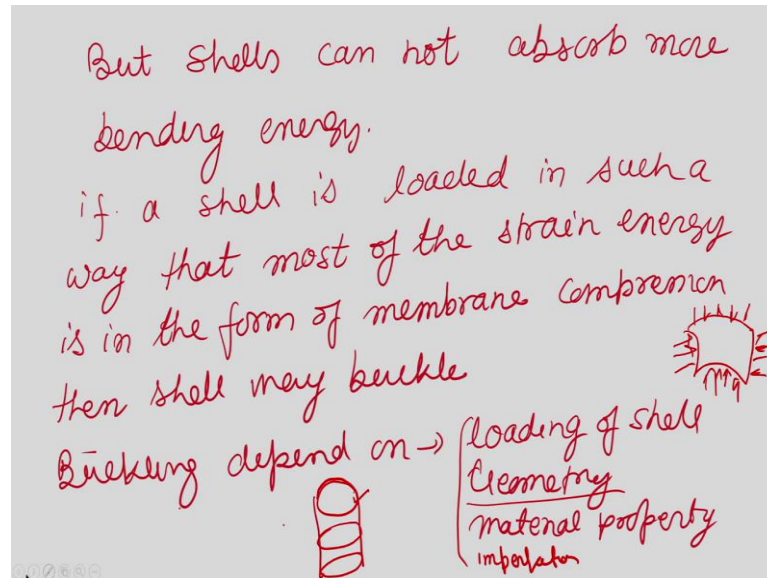 But shells can not absorb more
bending energy.
if a shell is loaded in such a
way that most of the strain energy
is in the form of membrane compression
then shell may buckle
Buckling depend on → loading of shell
Geometry
material property
imperfation